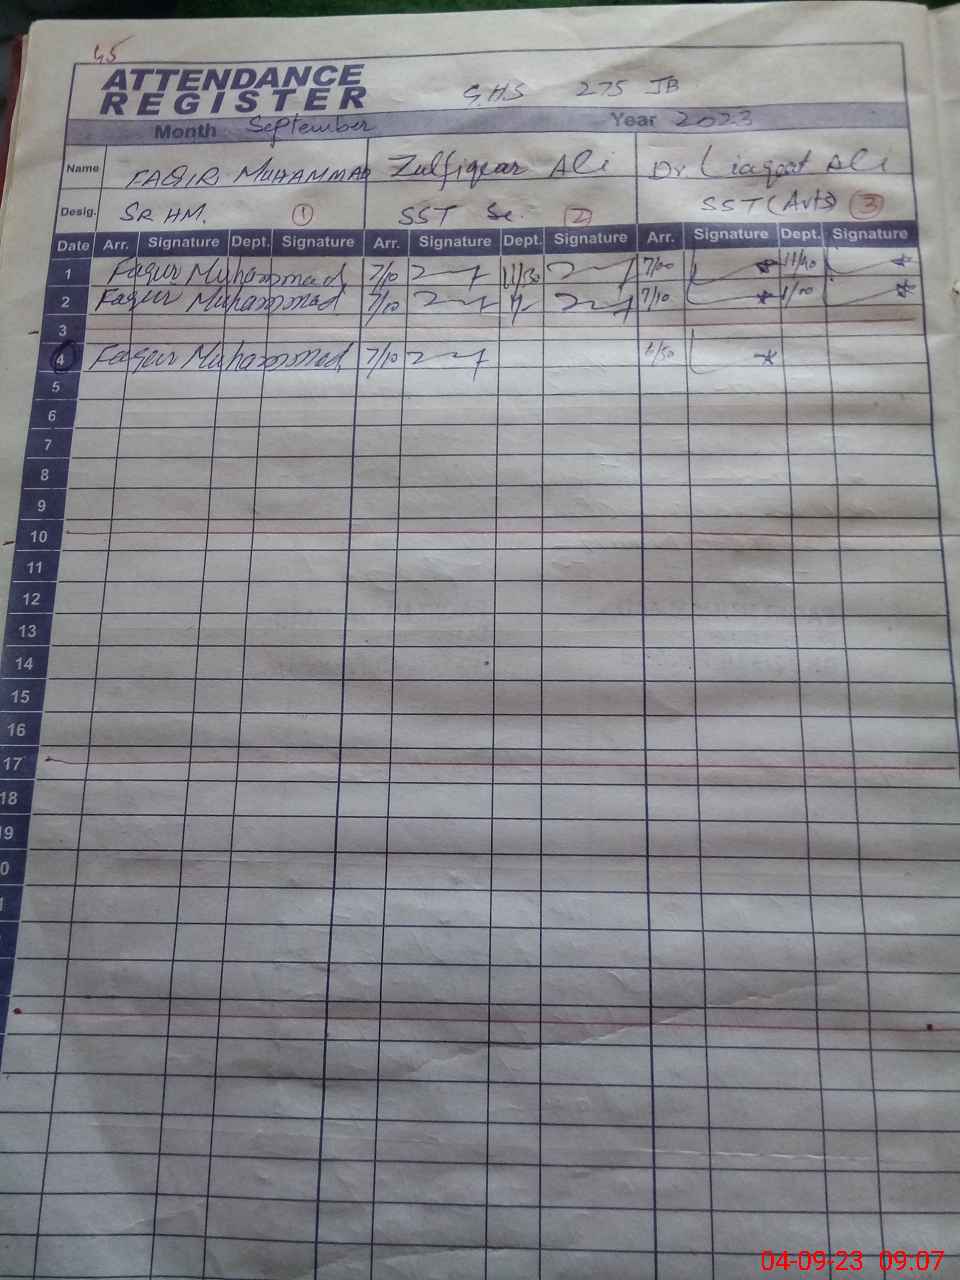 45
ATTENDANCE
REGISTER
G.H.S 275 JB
Month September Year 2023
Name FAQIR MUHAMMAD Zulfiqar Ali Dr. Liaqat Ali
Desig. SR HM. 1 SST Sc. 2 SST (Arts) 3
Date Arr. Signature Dept. Signature Arr. Signature Dept. Signature Arr. Signature Dept. Signature
1 Faqir Muhammad 7/10 11/30 7/00 11/40
2 Faqir Muhammad 7/10 7/10 1/00
3
4 Faqir Muhammad 7/10 6/50
5
6
7
8
9
10
11
12
13
14
15
16
17
18
19
0
04-09-23 09.07